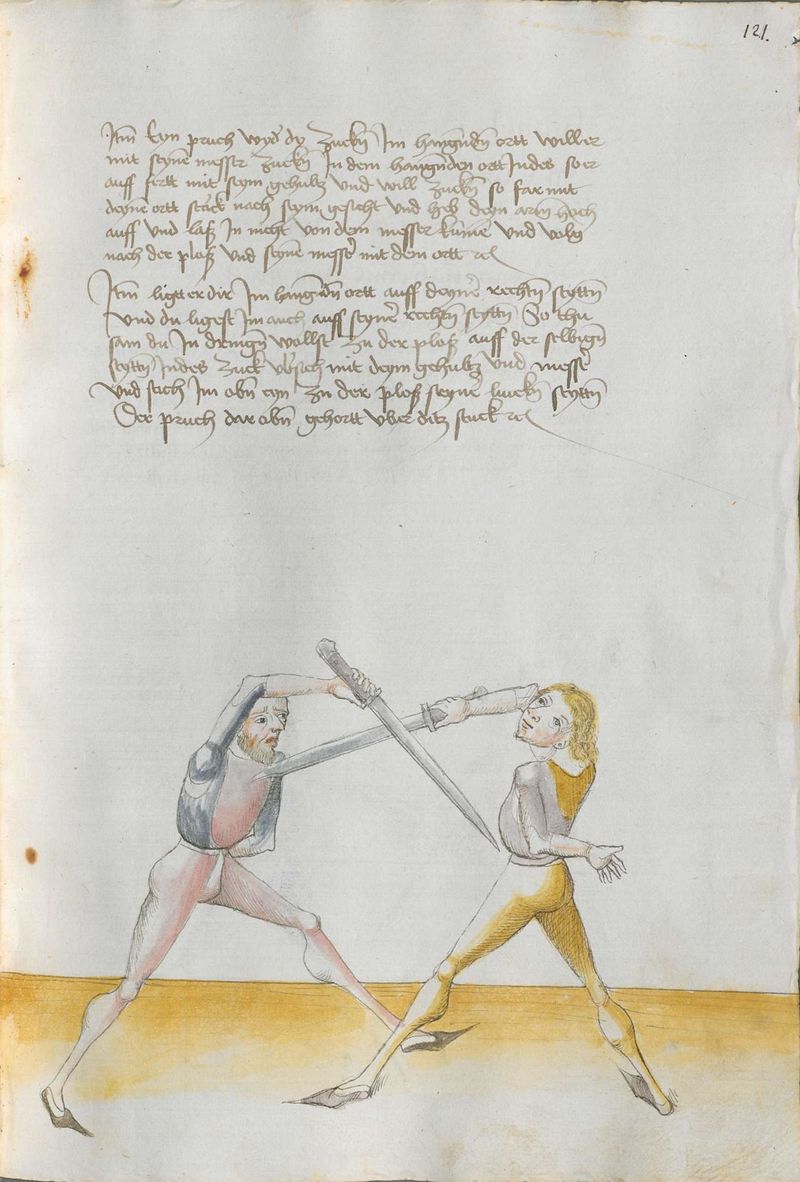 121.
Itm̄ Eyn pruch wyd' dy zuckn̄ Im hangn̄dn̄ ortt will er
mit seyne messer zuckn̄ In dem hangn̄den ort Indes so er
auff fertt mit seym gehultz vnd will zuckn̄ so far mit
deyne ortt starck nach seym gesicht vnd heb deyn arm hoch
auff vnd laß In nicht von dem messer kume vnd volg
nach der ploß vnd seyne messer mit dem ortt rc
Itm̄ ligtt er dir Im hangn̄dn̄ ortt auff deyner rechtn̄ seyttn̄
vnd du ligest Im auch auff seyner rechtn̄ seyttn̄ So thu
sam du In dringn̄ wollst zu der ploß auff der selbign̄
seyttn̄ Indes zuck vbersich mit deym gehultz vnd messer
vnd stich Im obn̄ eyn zu der ploß seyner linckn̄ seyttn̄
Der pruch dar obn̄ gehortt vber ditz stuck rc